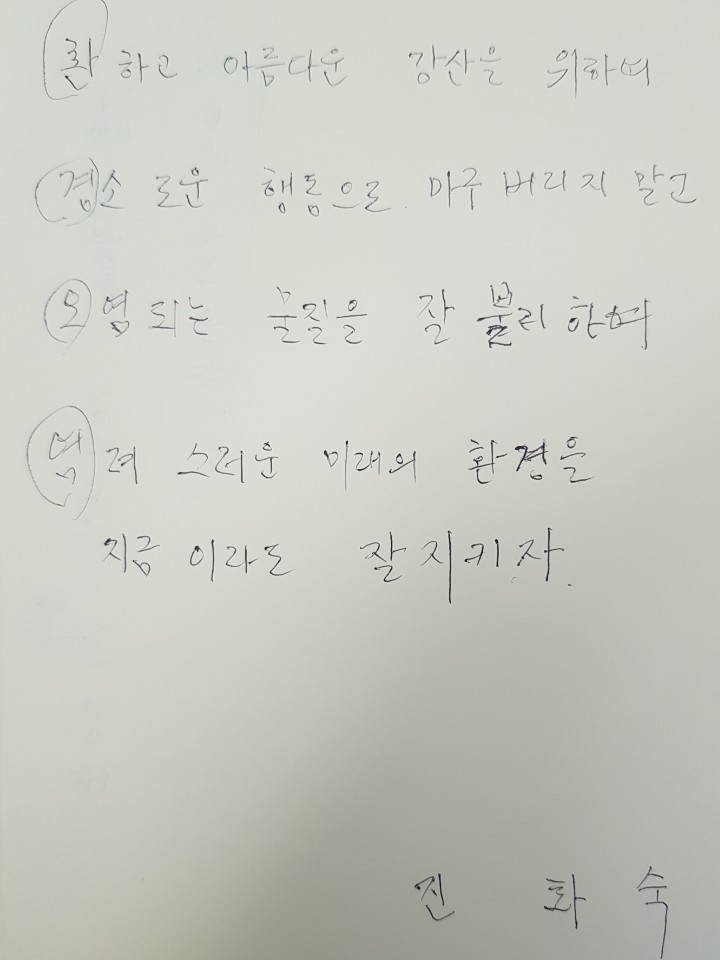 환하고 아름다운 강산을 위하여
경소로운 행동으로 마구 버리지 말고
오염되는 물질을 잘 분리하며
염려스러운 미래의 환경을
지금이라도 잘 지키자.
진화숙